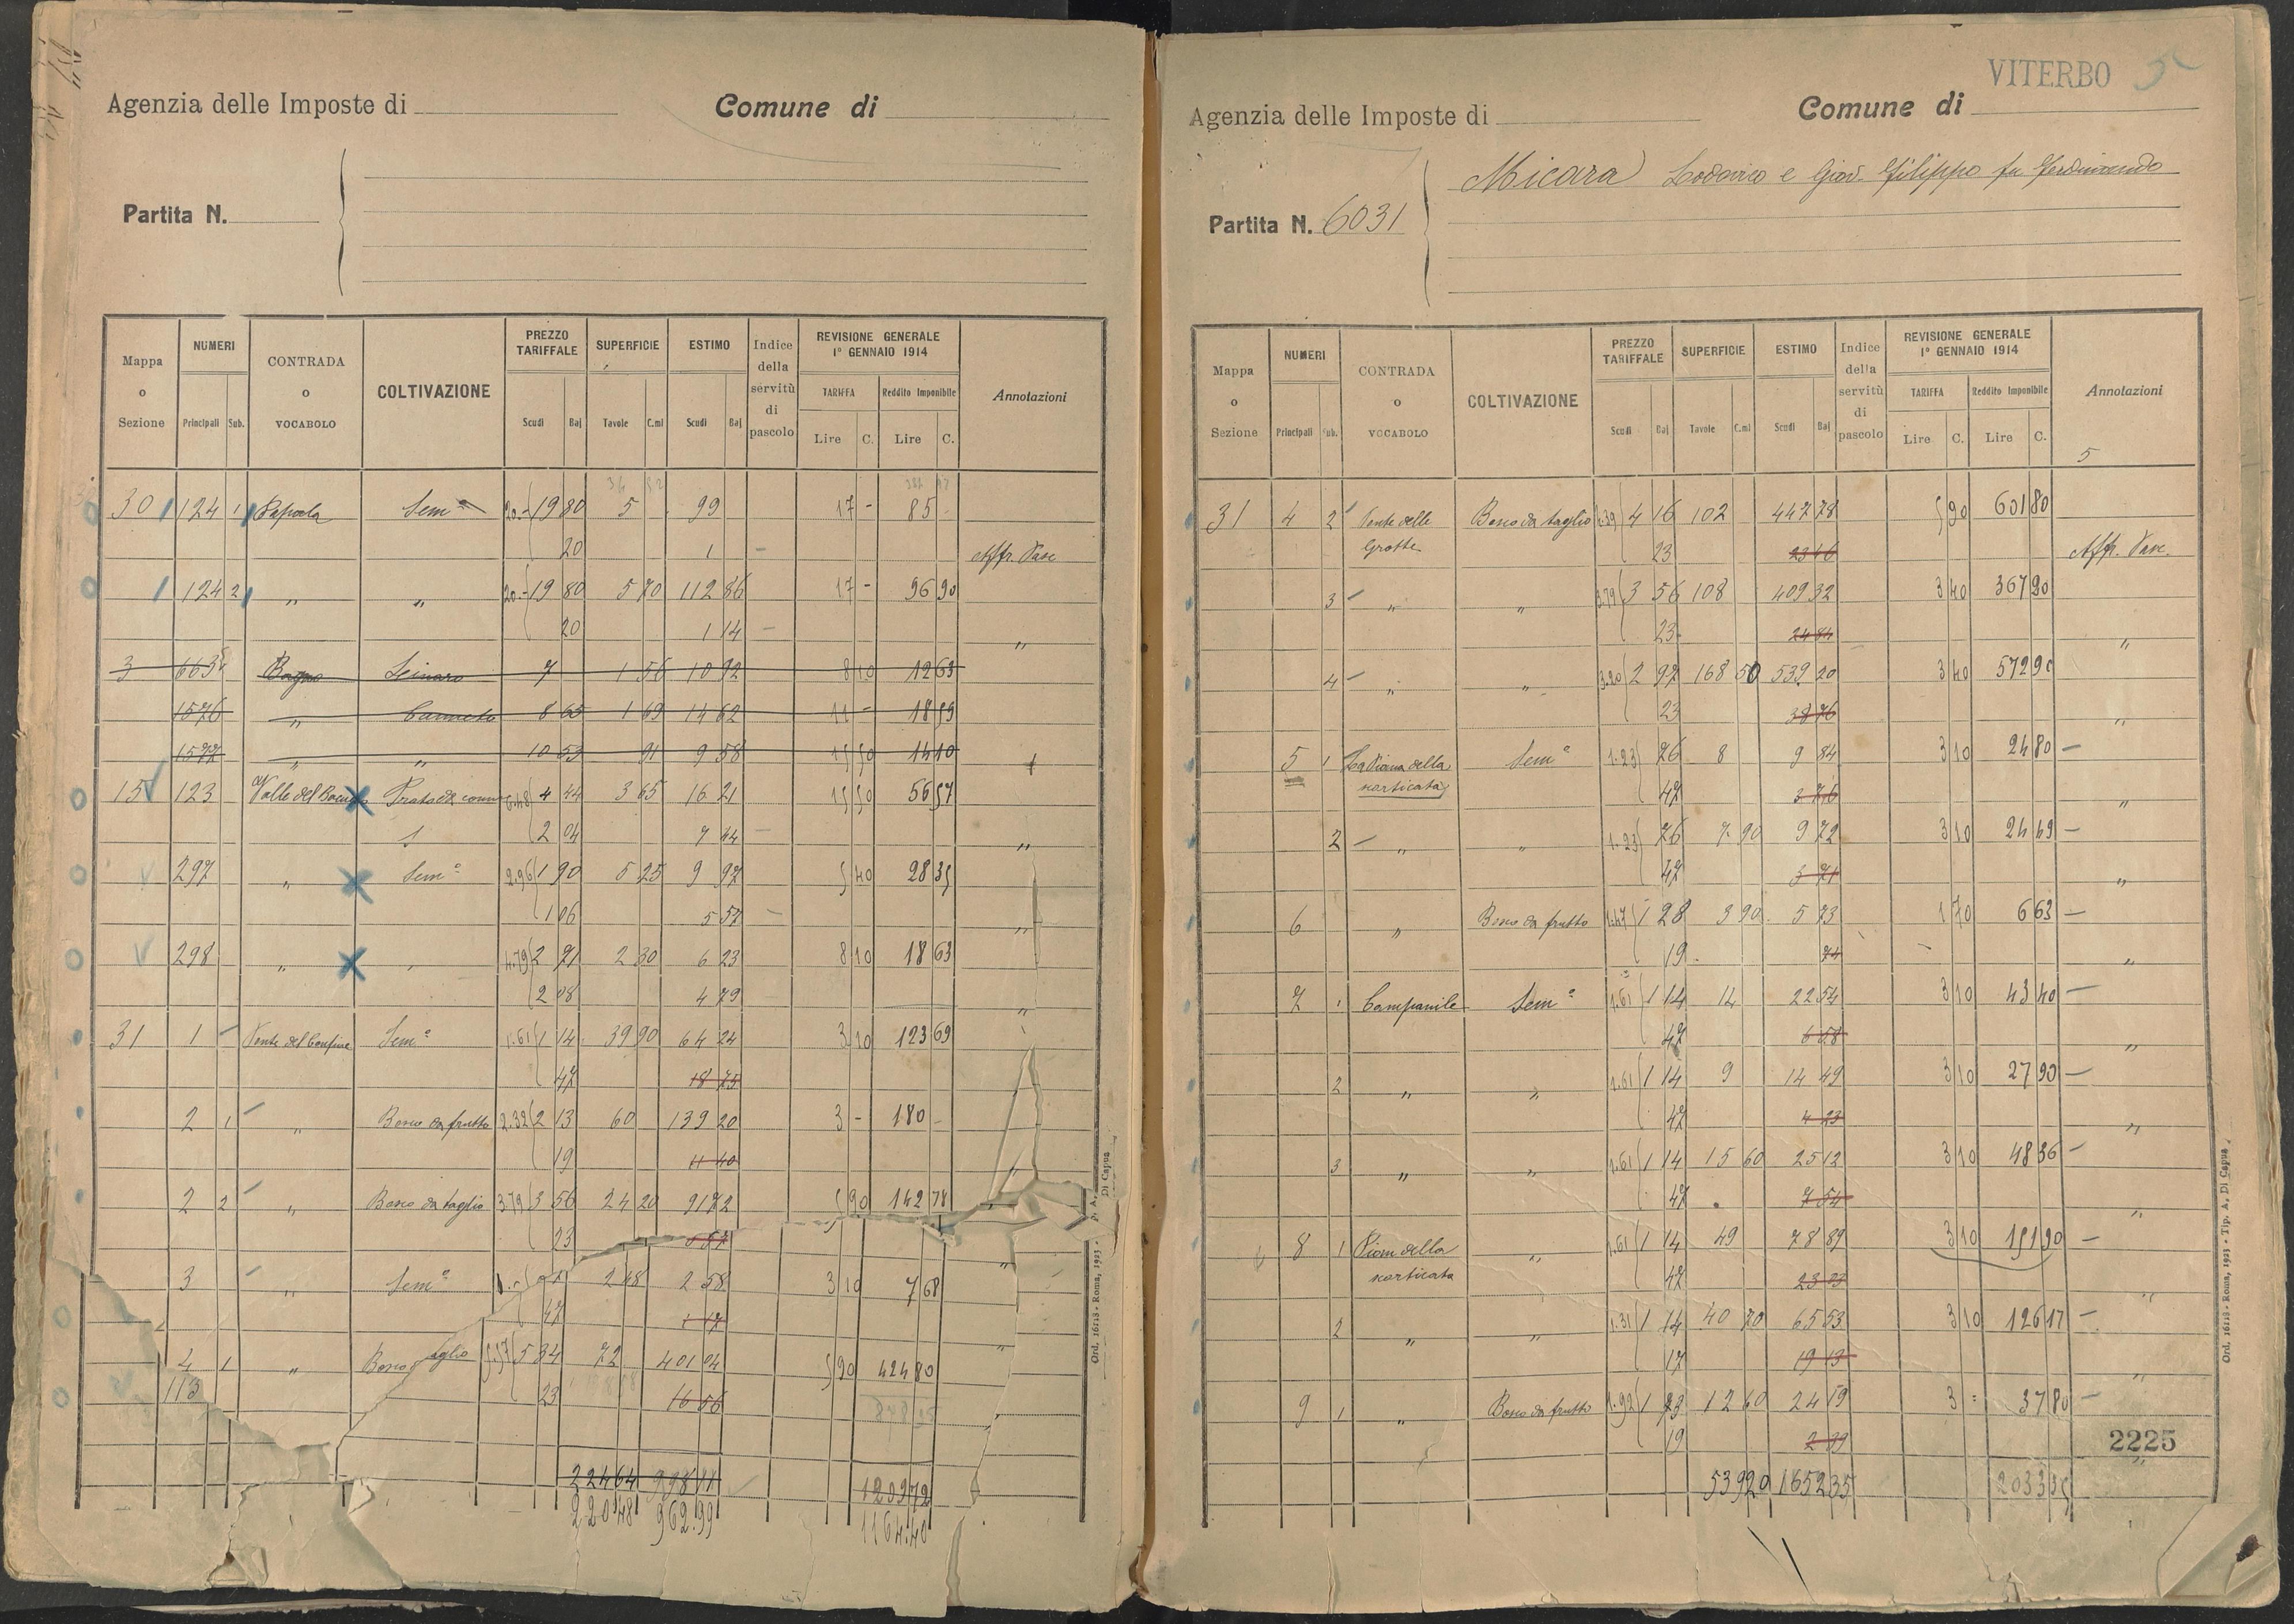 Agenzia delle Imposte di
Comune di
Partita N.
Mappa o Sezione | NUMERI Principali Sub. | CONTRADA o VOCABOLO | COLTIVAZIONE | PREZZO TARIFFALE Scudi Baj | SUPERFICIE Tavole C.mi | ESTIMO Scudi Baj | Indice della servitù di pascolo | REVISIONE GENERALE 1° GENNAIO 1914 TARIFFA Lire C. Reddito Imponibile Lire C. | Annotazioni
30 124 1 Sem° 20.- 19 80 5 99 17 - 85
20 1 - Affr. Pasc
124 2 " " 20.- 19 80 5 70 112 86 17 - 96 90
20 1 14 - "
3 663 Bagno 7 1 56 10 92 8 10 12 63
1576 " Canneto 8 65 1 69 14 62 11 - 18 59
1577 " " 10 53 91 9 58 15 50 14 10
15 123 Prato da 4 44 3 65 16 21 15 50 56 57
2 04 7 44 - "
297 " Sem° 2.96 1 90 5 25 9 97 5 40 28 35
1 06 5 57 - "
298 " " 4.79 2 71 2 30 6 23 8 10 18 63
2 08 4 79 "
31 1 - Ponte del Confine Sem° 1.61 1 14 39 90 64 24 3 10 123 69
47 18 75
2 1 " Bosco da frutto 2.32 2 13 60 139 20 3 - 180 -
19 11 40 "
2 2 " Bosco da taglio 3.79 3 56 24 20 91 72 5 90 142 78
23 5 57
3 " Sem° 2 48 2 58 3 10 7 68
47 1 17
4 1 " Bosco aglio 5.57 5 34 72 401 04 5 90 424 80
113 23 16 56
224 64 998 11 1209 72
220 48 962.99 1164.40
Ord. 16128 - Roma, 1923 - Di Capua
VITERBO 5
Agenzia delle Imposte di
Comune di
Micara Lodovico e Giov. Filippo fu Ferdinando
Partita N. 6031
Mappa o Sezione | NUMERI Principali Sub. | CONTRADA o VOCABOLO | COLTIVAZIONE | PREZZO TARIFFALE Scudi Baj | SUPERFICIE Tavole C.mi | ESTIMO Scudi Baj | Indice della servitù di pascolo | REVISIONE GENERALE 1° GENNAIO 1914 TARIFFA Lire C. Reddito Imponibile Lire C. | Annotazioni
5
31 4 2 Ponte delle Bosco da taglio 4.39 4 16 102 447 78 5 90 601 80
Grotte 23 23 46 Affr. Pasc.
3 " " 3.79 3 56 108 409 32 3 40 367 90
23 24 84 "
4 " " 3.20 2 97 168 50 539 20 3 40 572 90
23 38 76 "
5 1 La Piana della Sem° 1.23 76 8 9 84 3 10 24 80 -
scorticata 47 3 76 "
2 " " 1.23 76 7 90 9 72 3 10 24 49 -
47 3 71 "
6 " Bosco da frutto 1.47 1 28 3 90 5 73 1 70 6 63 -
19 74 "
7 1 Campanile Sem° 1.61 1 14 14 22 54 3 10 43 40 -
47 6 58 "
2 " " 1.61 1 14 9 14 49 3 10 27 90 -
47 4 23 "
3 " " 1.61 1 14 15 60 25 12 3 10 48 36 -
47 7 54 "
8 1 Piana della " 1.61 1 14 49 78 89 3 10 151 90 -
scorticata 47 23 03 "
2 " " 1.31 1 14 40 70 65 53 3 10 126 17 -
17 19 13 "
9 1 " Bosco da frutto 1.92 1 73 12 60 24 19 3 = 37 80 -
19 2 39
2225
539 20 1652 35 2033 35
Ord. 16128 - Roma, 1923 - Tip. A. Di Capua